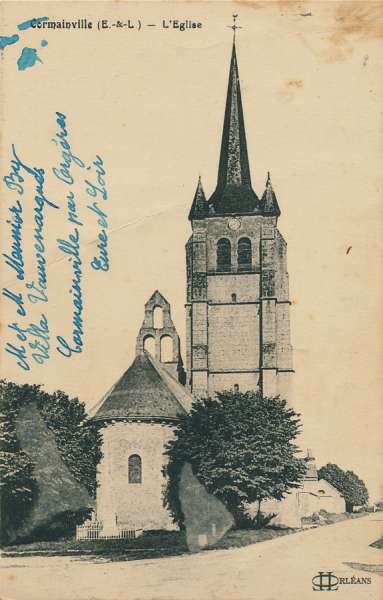 Cormainville (E.-&-L.) — L'Eglise
M et M Meunier By
Villa Vauvenargues
Cormainville par Orgères
Eure et Loir
ORLÉANS